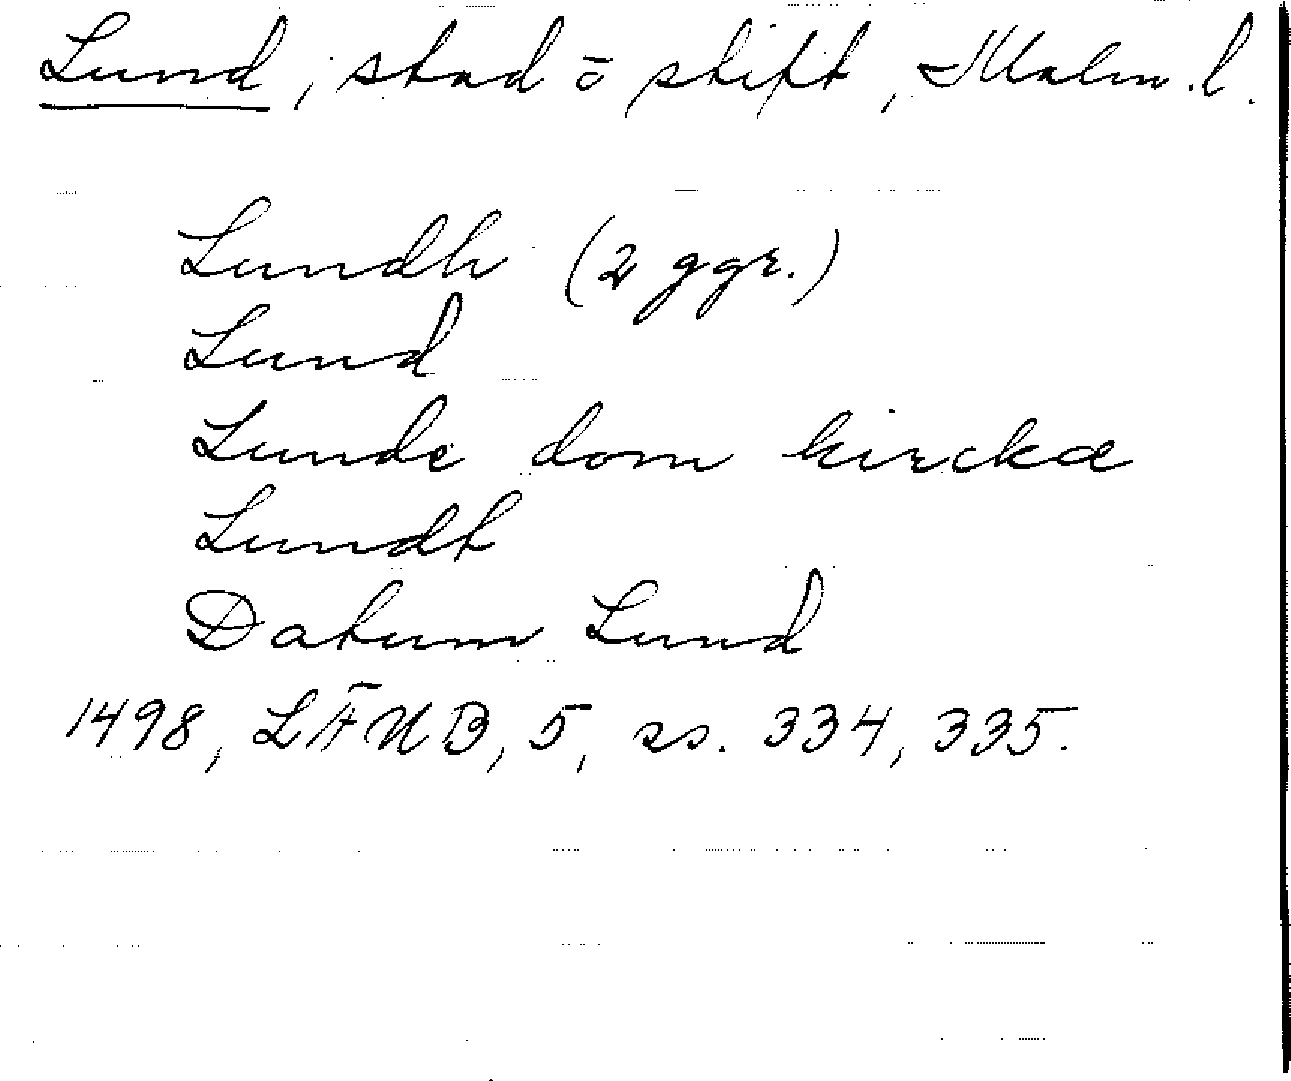 Lund, stad o stift, Malm. l.
Lundh (2 ggr.)
Lund
Lunde dom kirckæ
Lundt
Datum Lund
1498, LÄUB, 5, ss. 334, 335.